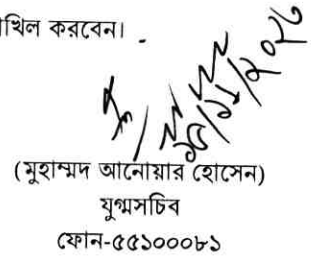 খিল করবেন।
(মুহাম্মদ আনোয়ার হোসেন)
যুগ্মসচিব
ফোন-৫৫১০০০৮১